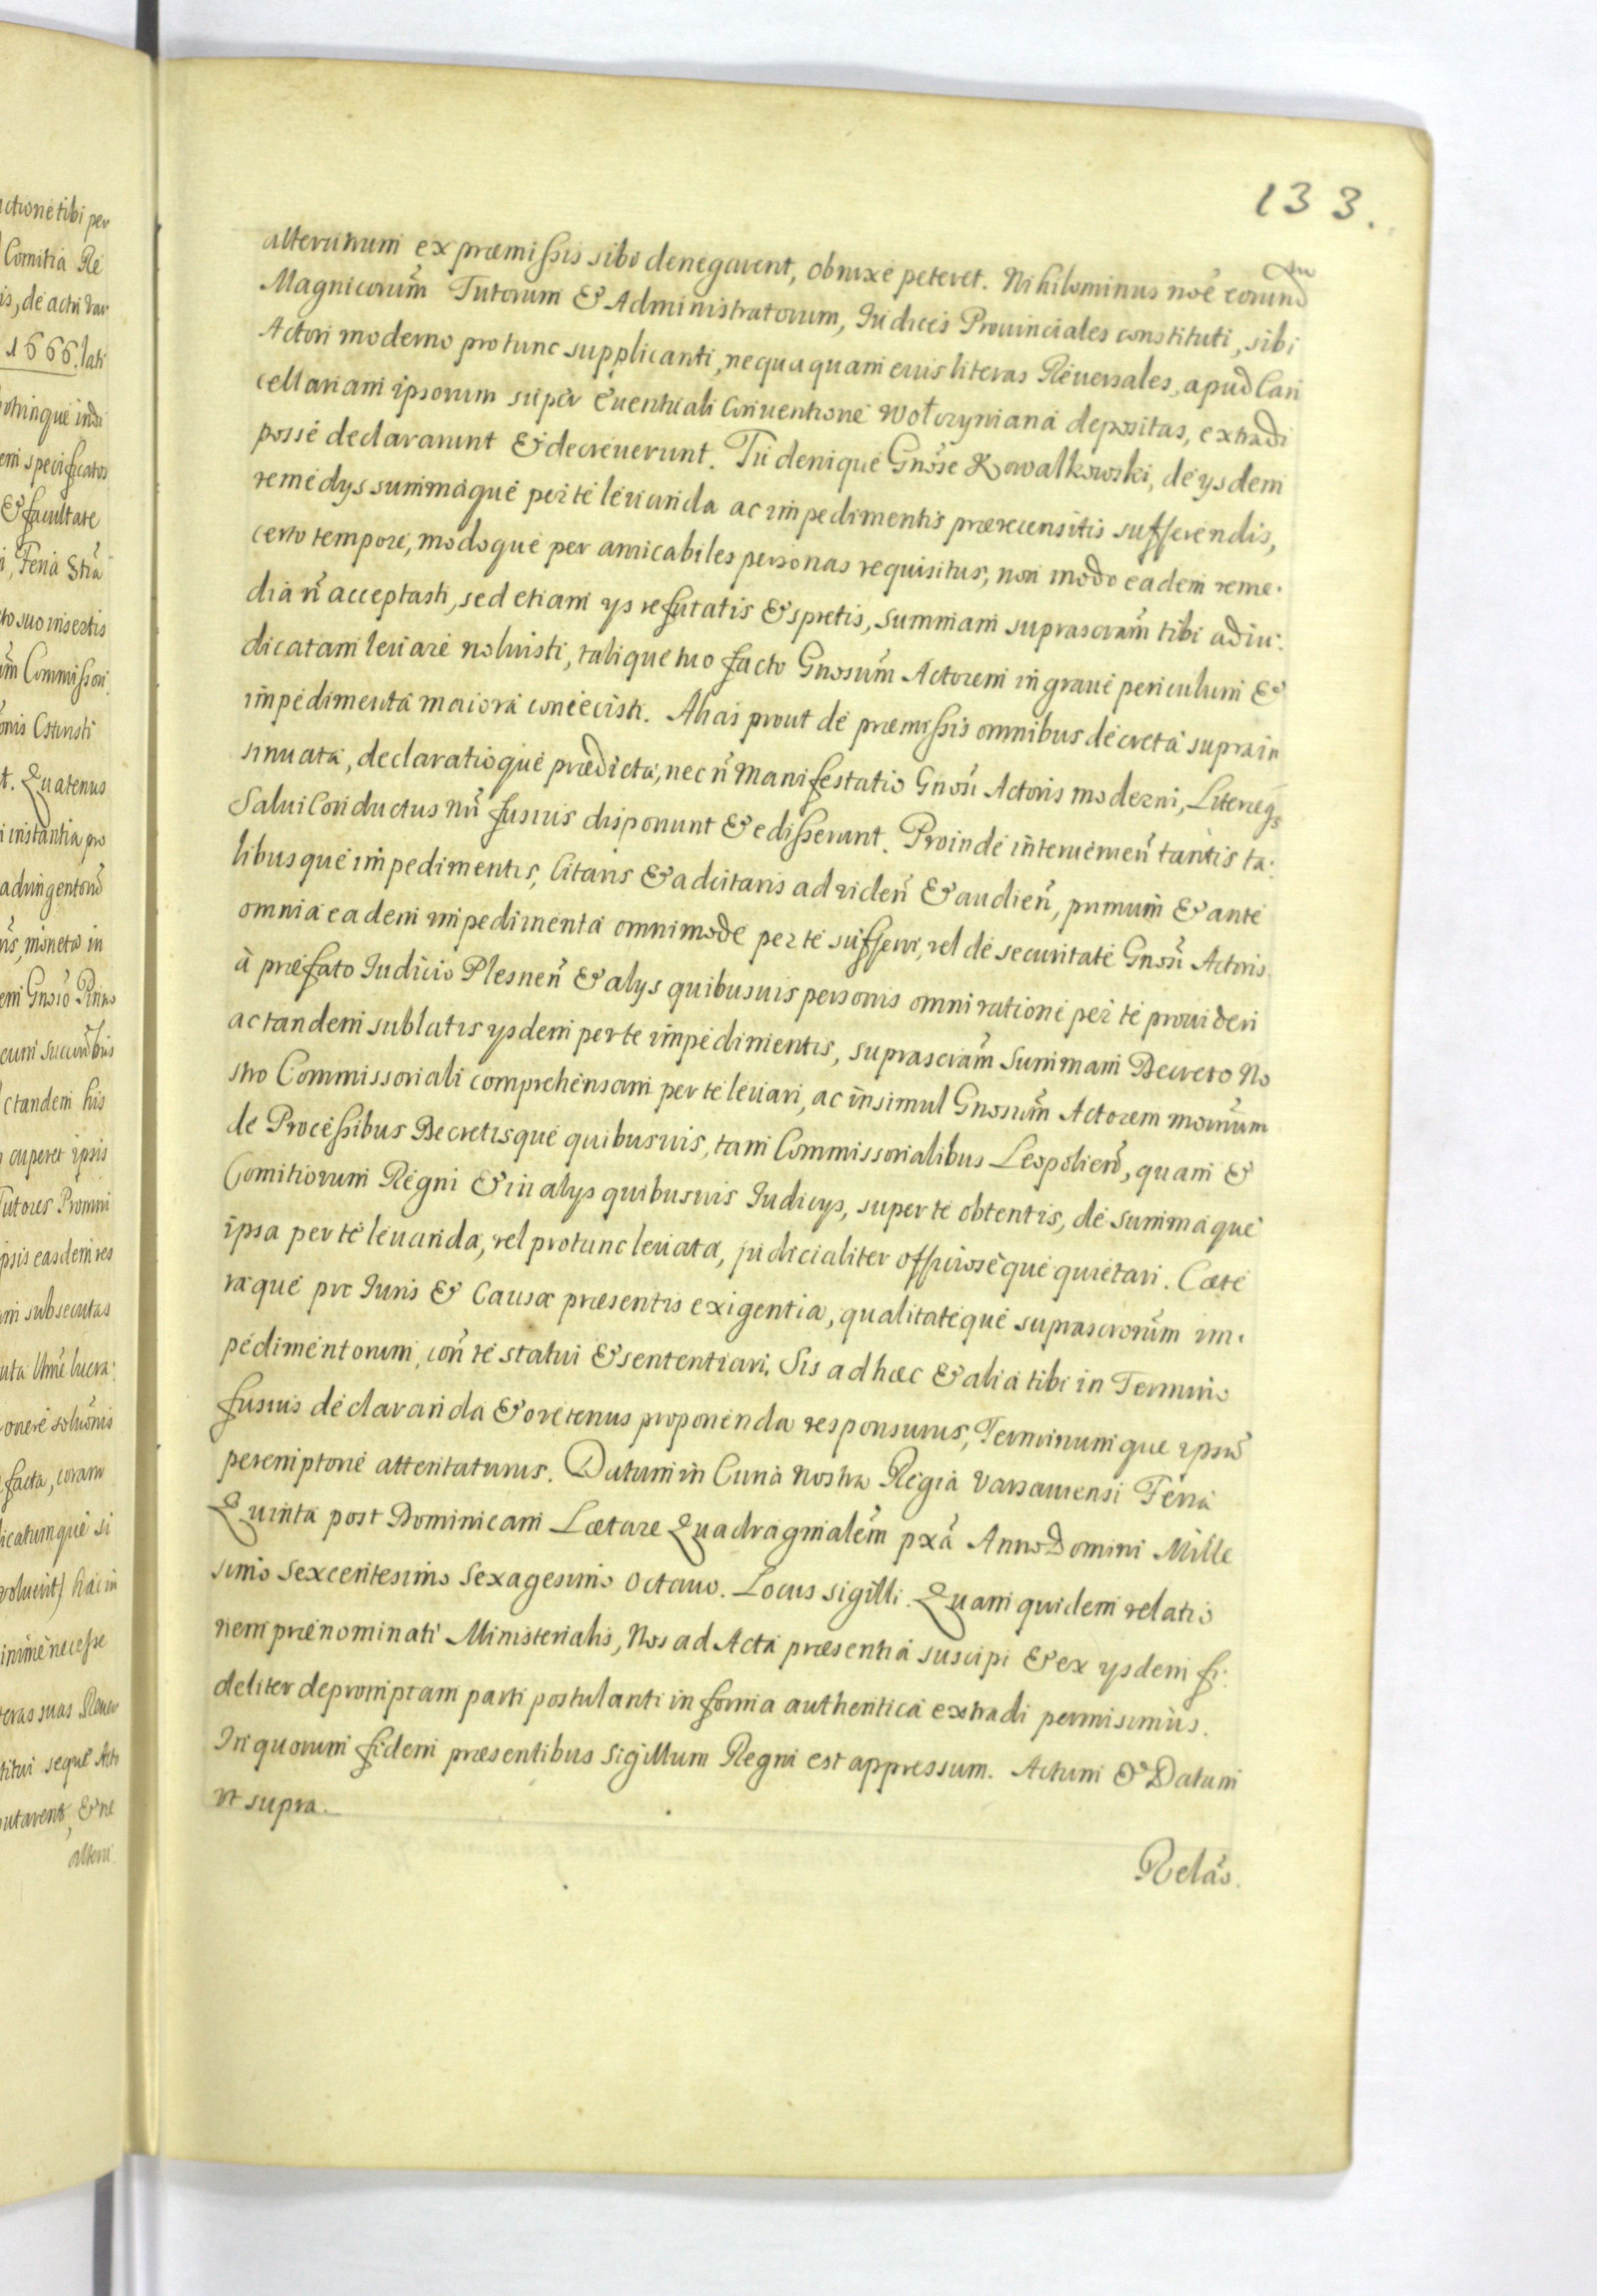 133.
alterutrum ex præmissis sibi denegarent, obnixe peteret. Nihilominus noê eorund
Magnicorum̃ Tutorum & Administratorum, Iudices Prouinciales constituti, sibi
Actori moderno protunc supplicanti, nequaquam eius literas Reuersales, apud Can
cellariam ipsorum super euentuali Conuentione Wołczyniana depositas, extradi
posse declararunt & decreuerunt. Tu denique Gnose Kowalkowski, de ysdem
remedys summaque per te leuanda ac impedimentis præcensitis sufferendis,
certo tempore, modoque per amicabiles personas requisitus, non modo eadem reme.
dia ñ acceptasti, sed etiam ys refutatis & spretis, summam suprascram̃ tibi adiu:
dicatam leuare noluisti, talique tuo facto Gnosum̃ Actorem in graue periculum &
impedimenta maiora coniecisti. Alias prout de præmissis omnibus decreta suprain
sinuata, declaratioque prædicta, nec ñ Manifestatio Gnosi Actoris moderni, Literæqs
Salui Conductus Nri fusius disponunt & edisserunt. Proinde interuenien̄ tantis ta:
libusque impedimentis, Citaris & adcitaris ad viden̄ & audien̄, primum & ante
omnia eadem impedimenta omnimode per te sufferri, vel de securitate Gnosi Actoris
à præfato Iudicio Plesnen̄ & alys quibusuis personis omni ratione per te prouideri
ac tandem sublatis ysdem per te impedimentis, suprascram̃ Summam Decreto No
stro Commissoriali comprehensam per te leuari, ac insimul Gnosum̃ Actorem mornum̃
de Processibus Decretisque quibusuis, tam Commissorialibus Leopolien̄, quam &
Comitiorum Regni & in alys quibusuis Iudicys, super te obtentis, de Summaque
ipsa per te leuanda, vel protunc leuata, judicialiter officioseque quietari. Cæte
raque pro Iuris & Causæ præsentis exigentia, qualitateque suprascrorum̃ im.
pedimentorum, con̄ te statui & sententiari. Sis ad hæc & alia tibi in Termino
fusius declaranda & oretenus proponenda responsurus, Terminumque ipsũ
peremptorie attentaturus. Datum in Curia Nostra Regia Varsauiensi Feria
Quinta post Dominicam Lætare Quadragmalem̃ pxã Anno Domini Mille
simo Sexcentesimo Sexagesimo Octauo. Locus sigilli. Quam quidem relatio
nem prænominati Ministerialis, Nos ad Acta præsentia suscipi & ex ysdem fi:
deliter depromptam parti postulanti in forma authentica extradi permisimus.
In quorum fidem præsentibus Sigillum Regni est appressum. Actum & Datum
vt supra.
Relão.